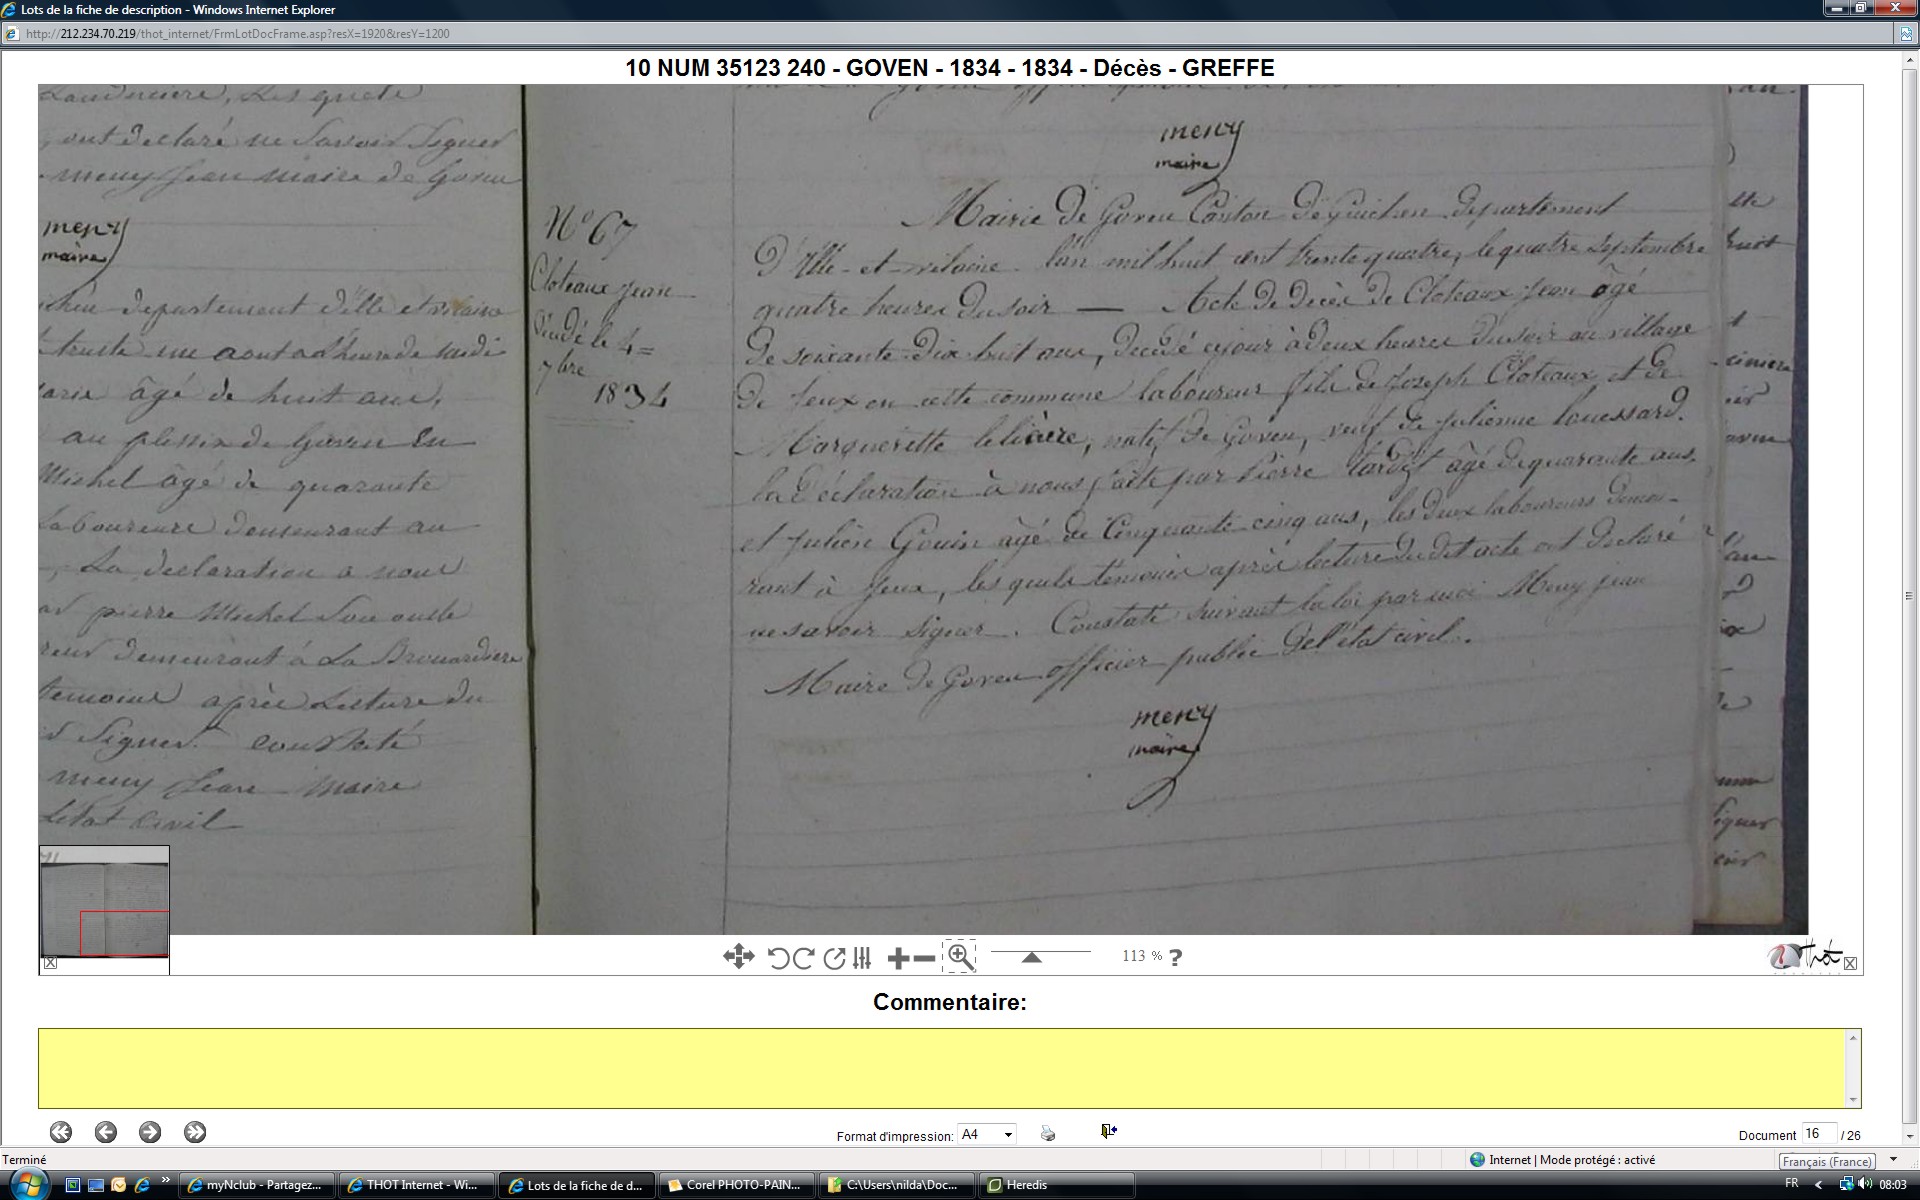 Lots de la fiche de description - Windows Internet Explorer
http://212.234.70.219/thot_internet/FrmLotDocFrame.asp?resX=1920&resY=1200
10 NUM 35123 240 - GOVEN - 1834 - 1834 - Décès - GREFFE
Les quels
ont declaré ne Savoir Signer
meny Jean maire de Goven
meny
maire
departement d'ille et vilaine
trente un aout a l'heure de midi
âgé de huit ans,
au plessix de Goven En
Michel âgé de quarante
Laboureure demeurant au
La declaration a nous
pierre Michel Son oncle
demeurant à La Brouardiere
temoins après Lecture du
Signer. constaté
meny Jean maire
L'état Civil
meny
maire
N° 67
Cloteaux Jean
Décédé le 4=
7bre
1834
Mairie de Goven Canton de Guichen departement
d'Ille-et-vilaine. l'an mil huit cent trente quatre, le quatre Septembre
quatre heures du soir — Acte de decès de Cloteaux Jean âgé
de soixante-dix huit ans, decédé ce jour à deux heures du soir au village
de feux en cette commune laboureur fils de Joseph Cloteaux et de
Marguerette lelièvre, natif de Goven, veuf de Julienne louessard.
la déclaration à nous faite par Pierre tardif âgé de quarante ans
et Julien Gouin âgé de Cinquante-cinq ans, les deux laboureurs demeu-
rant à feux, les quels témoins après lecture du dit acte ont declaré
ne savoir signer. Constaté suivant la loi par moi Meny jean
Maire de Goven officier public de l'état civil.
meny
maire
113 % ?
Thot
Commentaire:
Format d'impression: A4
Document 16 / 26
Terminé
Internet | Mode protégé : activé
Français (France)
myNclub - Partagez...
THOT Internet - Wi...
Lots de la fiche de d...
Corel PHOTO-PAIN...
C:\Users\nilda\Doc...
Heredis
FR
08:03